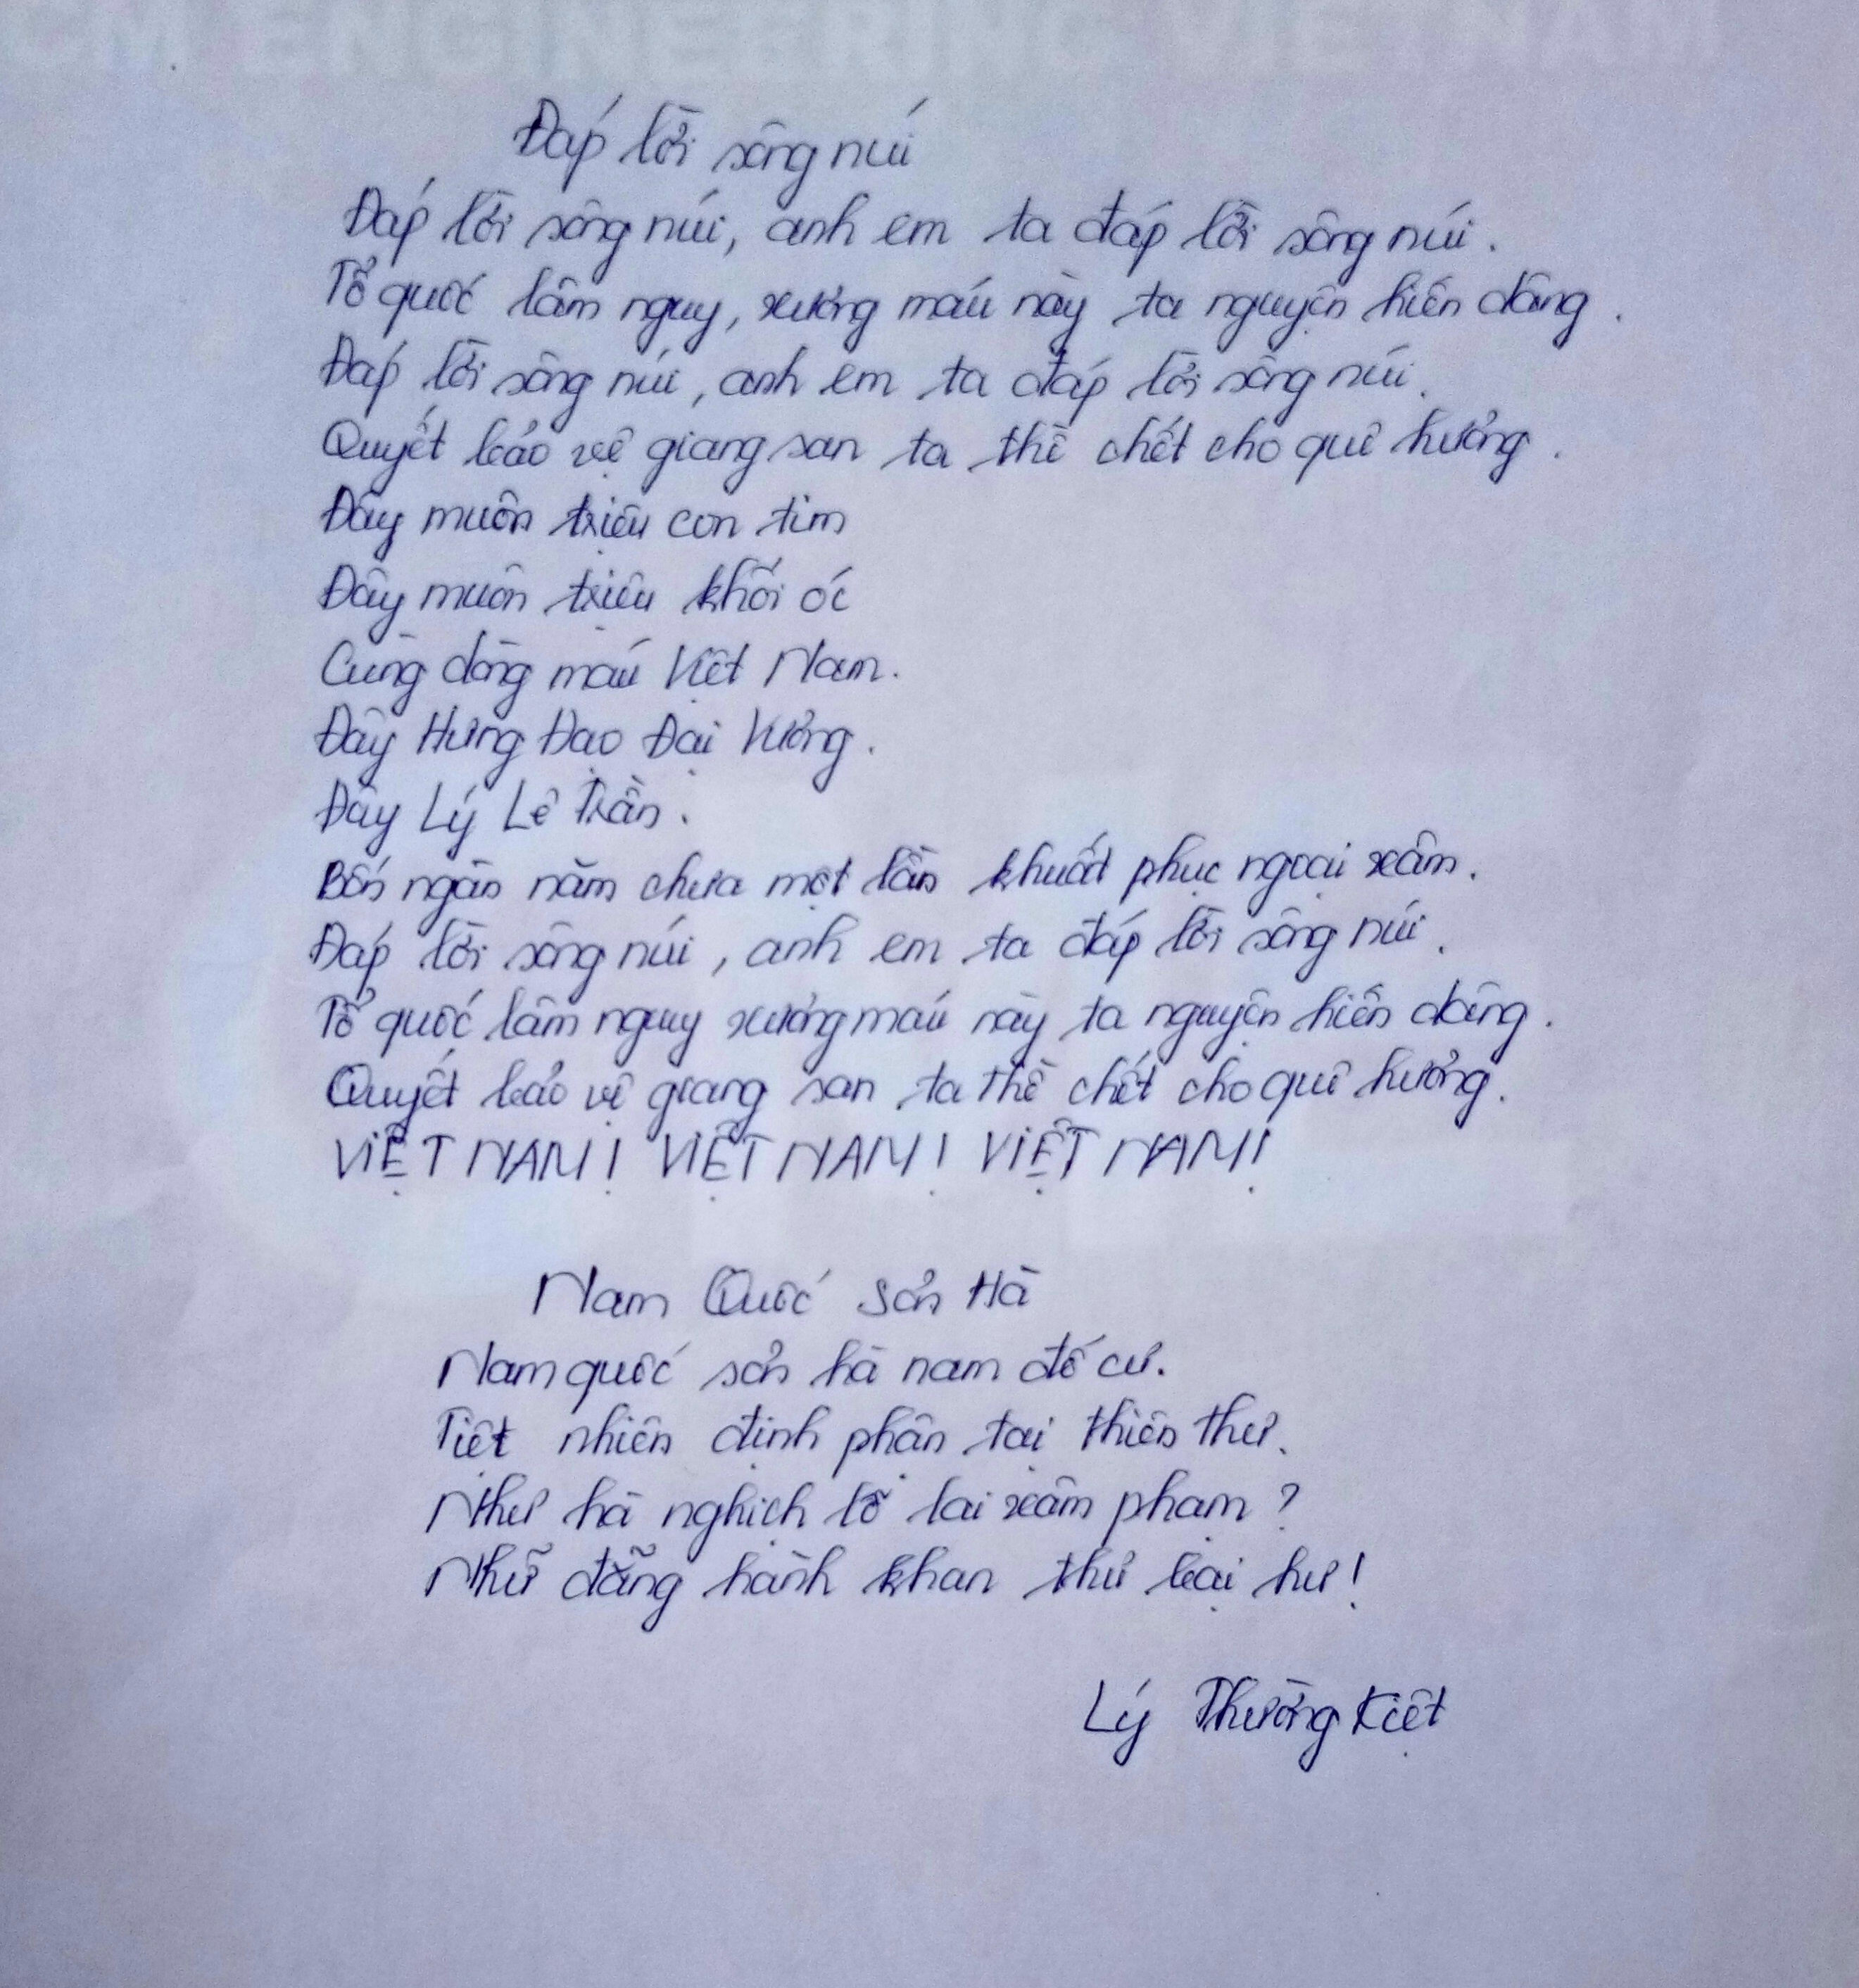 CM ENGINEERING VIET NAM
Đáp lời sông núi
Đáp lời sông núi, anh em ta đáp lời sông núi.
Tổ quốc lâm nguy, xương máu này ta nguyện hiến dâng.
Đáp lời sông núi, anh em ta đáp lời sông núi.
Quyết bảo vệ giang san ta thề chết cho quê hương.
Đây muôn triệu con tim
Đây muôn triệu khối óc
Cùng dòng máu Việt Nam.
Đây Hưng Đạo Đại Vương.
Đây Lý Lê Trần.
Bốn ngàn năm chưa một lần khuất phục ngoại xâm.
Đáp lời sông núi, anh em ta đáp lời sông núi.
Tổ quốc lâm nguy xương máu này ta nguyện hiến dâng.
Quyết bảo vệ giang san ta thề chết cho quê hương.
VIỆT NAM! VIỆT NAM! VIỆT NAM!
Nam Quốc Sơn Hà
Nam quốc sơn hà nam đế cư.
Tiệt nhiên định phận tại thiên thư.
Như hà nghịch lỗ lai xâm phạm?
Nhữ đẳng hành khan thủ bại hư!
Lý Thường Kiệt